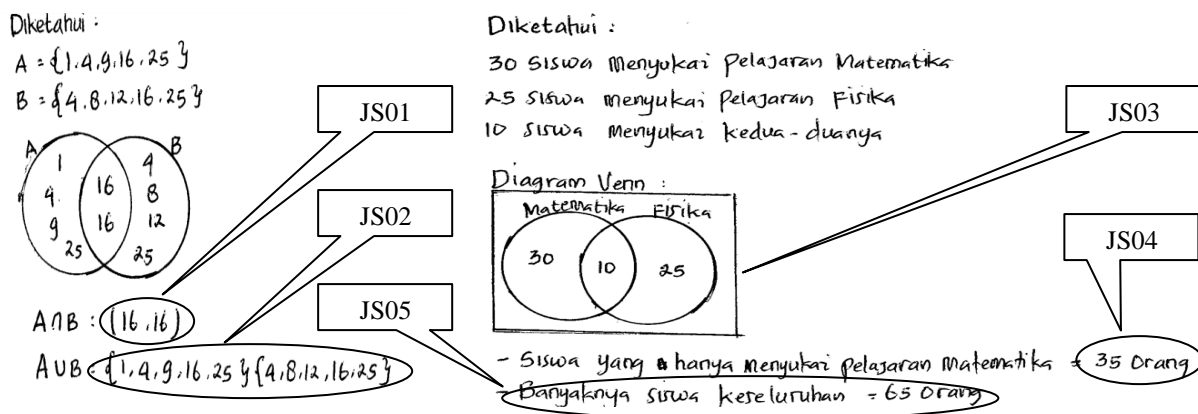 Diketahui :
A = {1.4.9.16.25}
B = {4.8.12.16.25}
JS01
A B
1 4
4. 16 8
9 16 12
25 25
JS02
A∩B : (16,16)
JS05
AUB = {1,4,9.16.25}{4.8.12.16.25}
Diketahui :
30 Siswa menyukai Pelajaran Matematika
25 Siswa menyukai Pelajaran Fisika
10 Siswa menyukai kedua-duanya
JS03
Diagram Venn :
Matematika Fisika
30 10 25
JS04
- Siswa yang hanya menyukai pelajaran matematika = 35 orang
- Banyaknya siswa keseluruhan = 65 orang